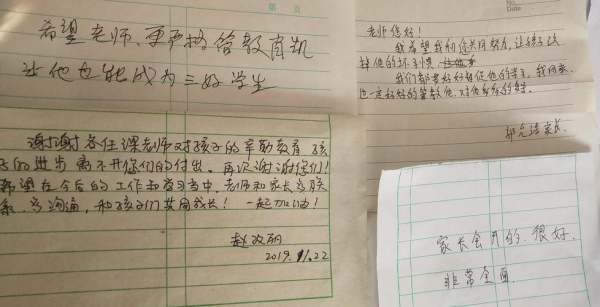 希望老师、更严格管教育凯
让他也能成为三好学生
No.
Date
老师您好！
我希望我们彼此共同努力，让孩子改
掉他的坏习惯
我们都要好好督促他的学习，我回来
也一定好好的管教他，对他负责的
家长
谢谢各任课老师对孩子的辛勤教育 孩
子的进步离不开你们的付出。再次谢谢你们！
希望在今后的工作和学习当中，老师和家长多联
系，多沟通，和孩子们共同成长！一起加油！
赵改丽
2019.11.22
家长会开的很好，
非常全面